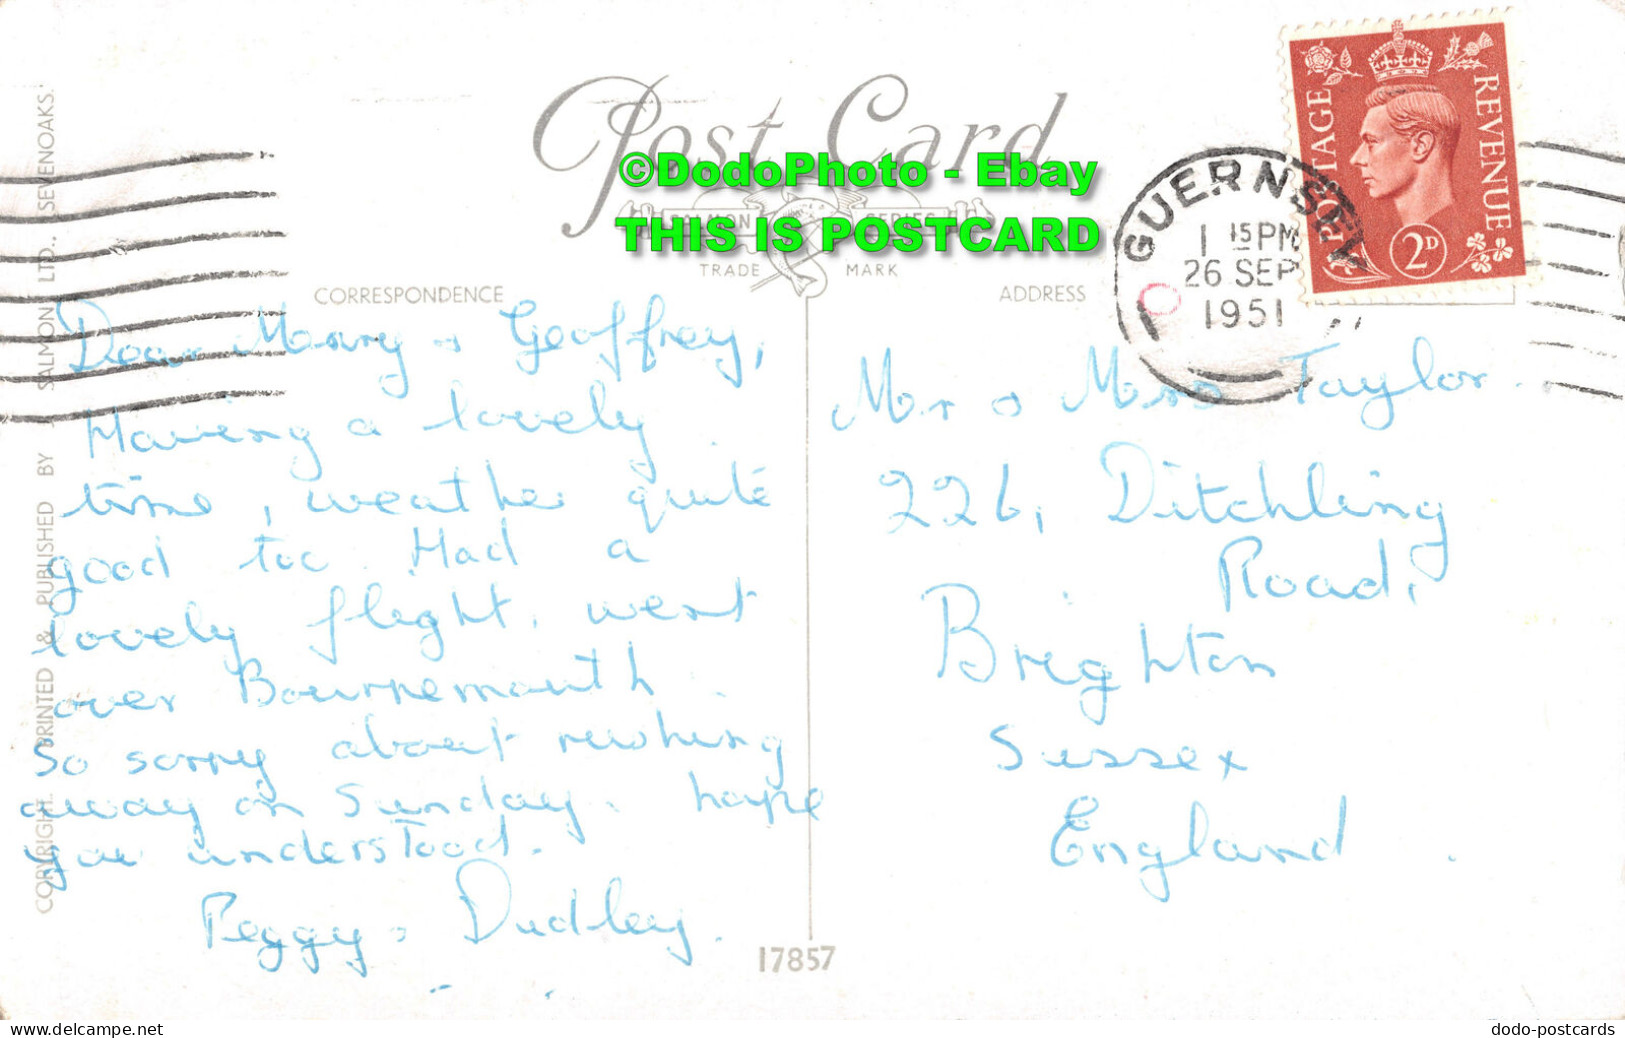 Post Card
©DodoPhoto - Ebay
THIS IS POSTCARD
SALMON SERIES
TRADE MARK
CORRESPONDENCE
ADDRESS
POSTAGE REVENUE
2D
GUERNSEY
1 15 PM
26 SEP
1951
COPYRIGHT. PRINTED & PUBLISHED BY J. SALMON LTD., SEVENOAKS.
Dear Mary & Geoffrey,
Having a lovely
time, weather quite
good too. Had a
lovely flight, went
over Bournemouth.
So sorry about rushing
away on Sunday. hope
you understood.
Peggy & Dudley.
Mr & Mrs Taylor.
226, Ditchling
Road,
Brighton
Sussex
England.
17857
www.delcampe.net
dodo-postcards